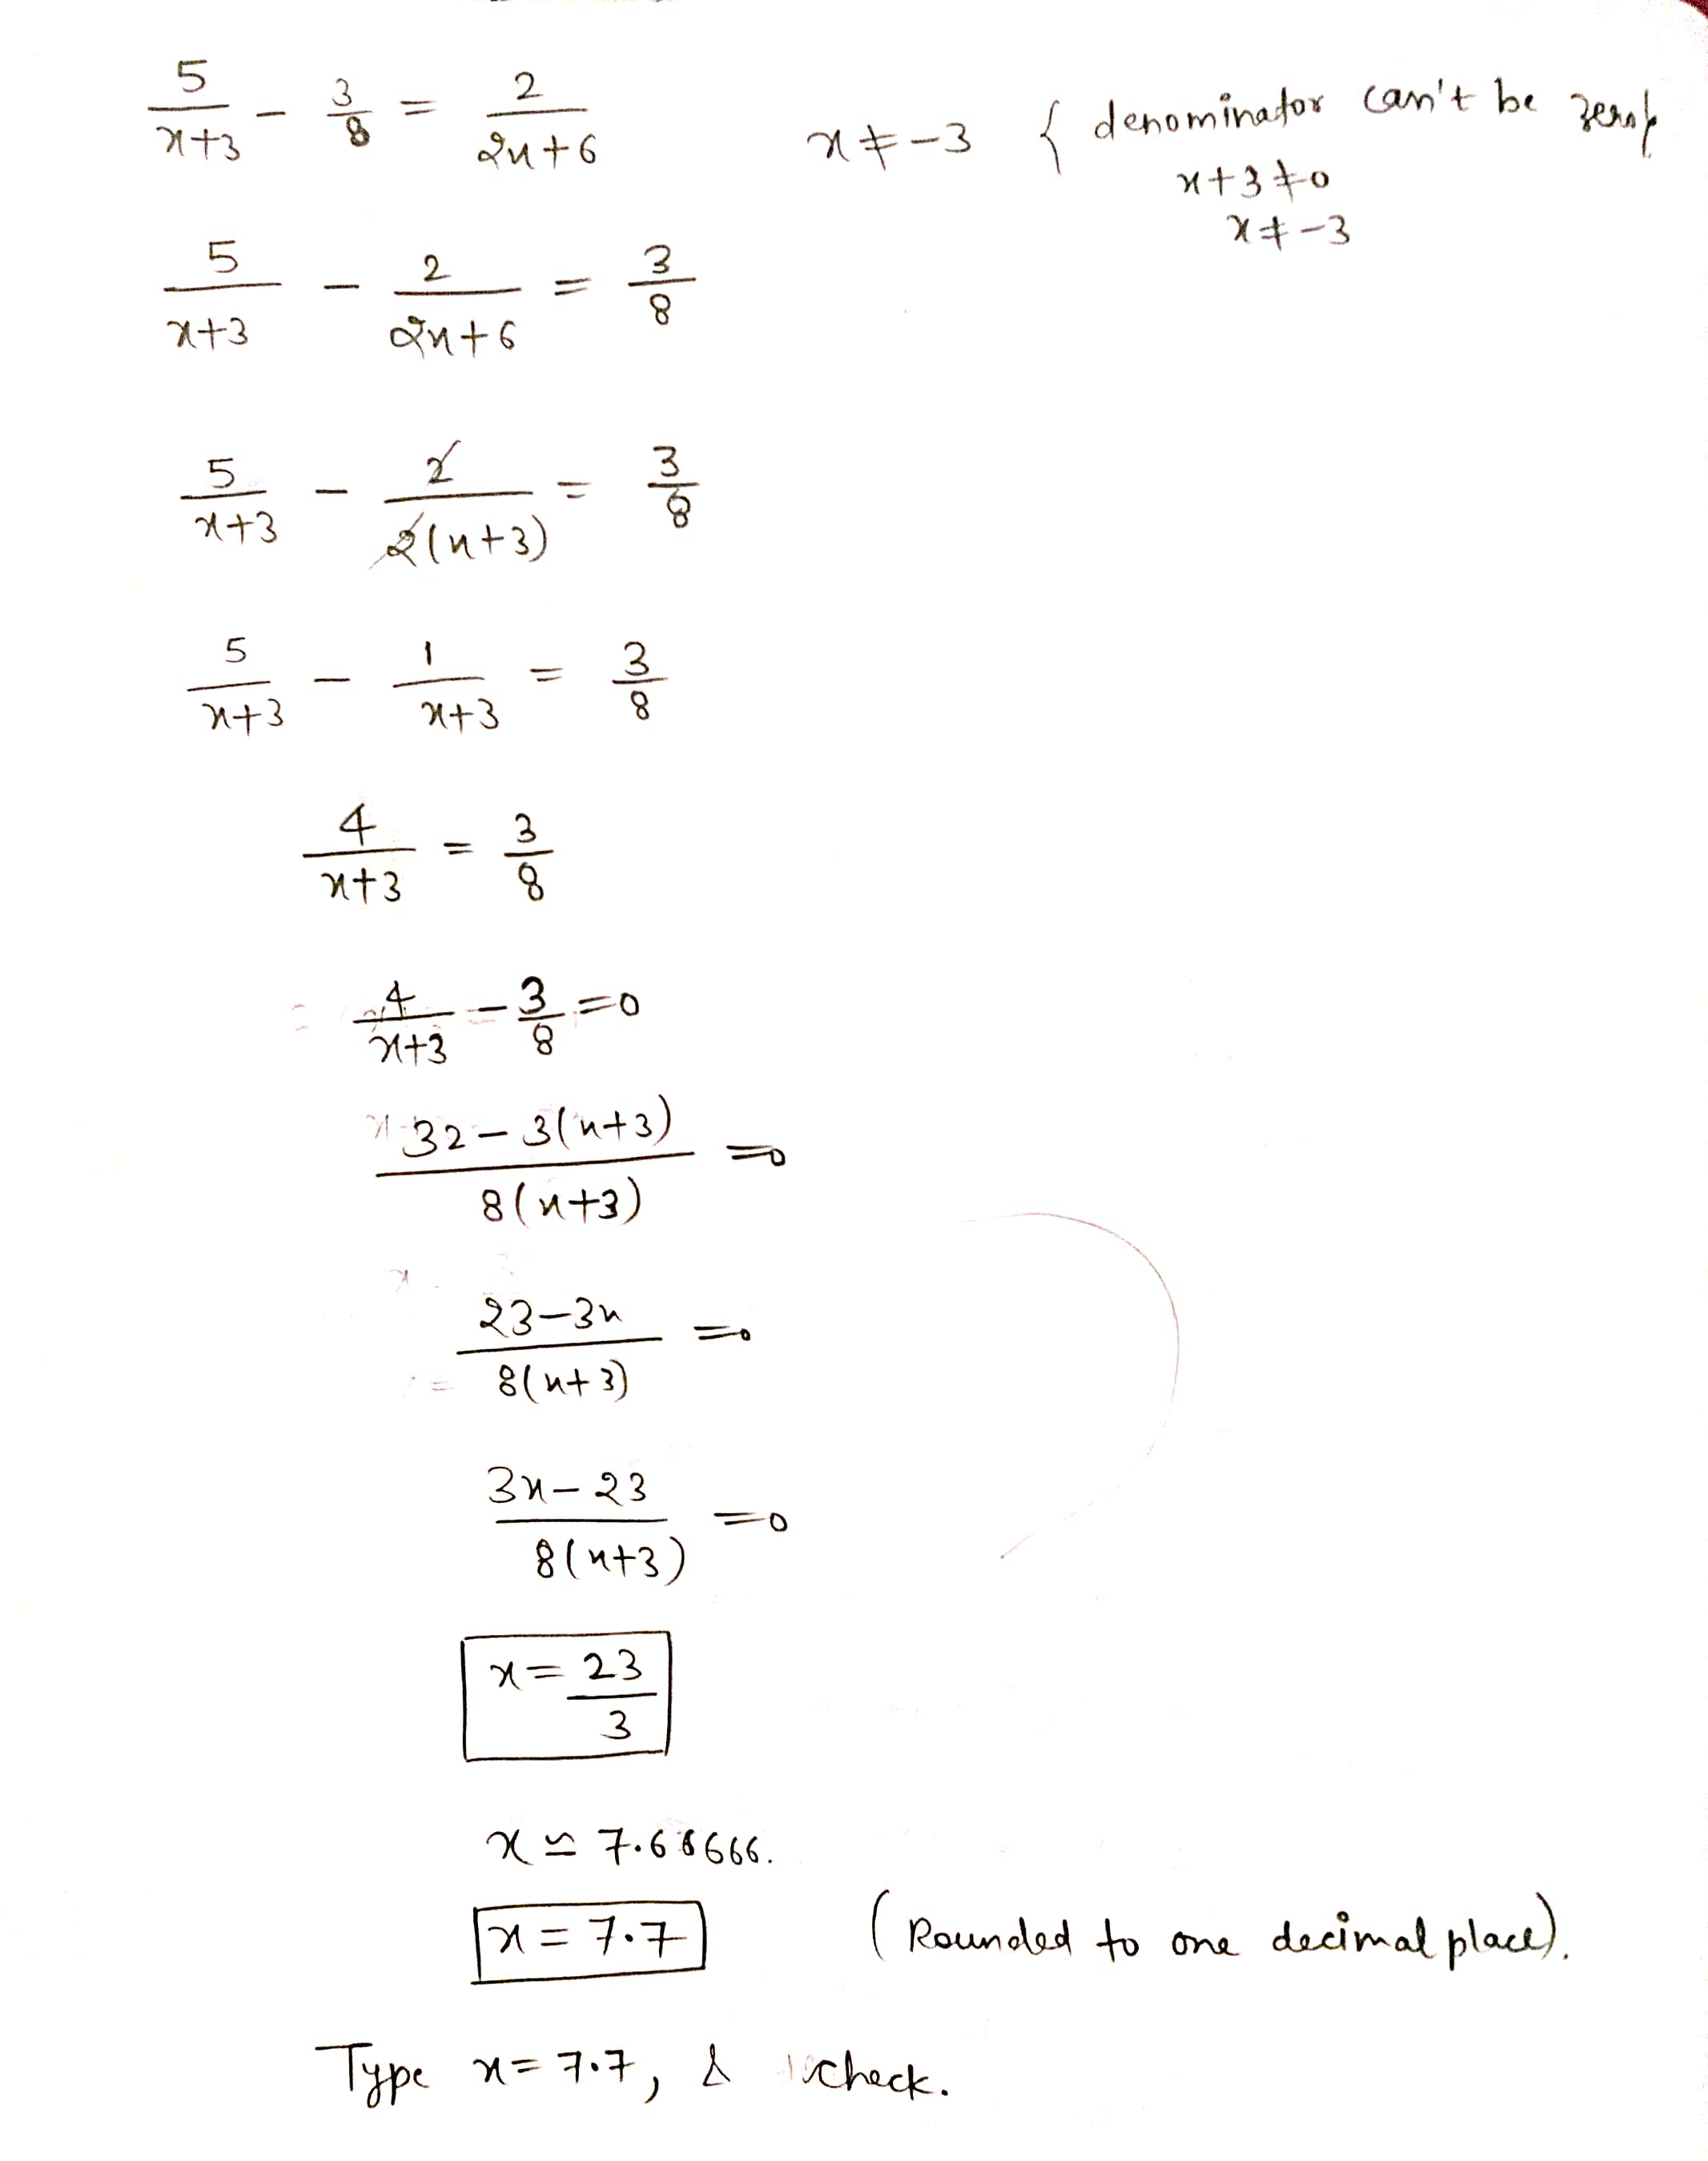 5/(x+3) - 3/8 = 2/(2x+6) x ≠ -3 { denominator can't be zero}
x+3 ≠ 0
x ≠ -3
5/(x+3) - 2/(2x+6) = 3/8
5/(x+3) - 2/(2(x+3)) = 3/8
5/(x+3) - 1/(x+3) = 3/8
4/(x+3) = 3/8
4/(x+3) - 3/8 = 0
(32 - 3(x+3))/(8(x+3)) = 0
(23-3x)/(8(x+3)) = 0
(3x-23)/(8(x+3)) = 0
x = 23/3
x ≃ 7.66666.
x = 7.7 (Rounded to one decimal place).
Type x = 7.7, & check.